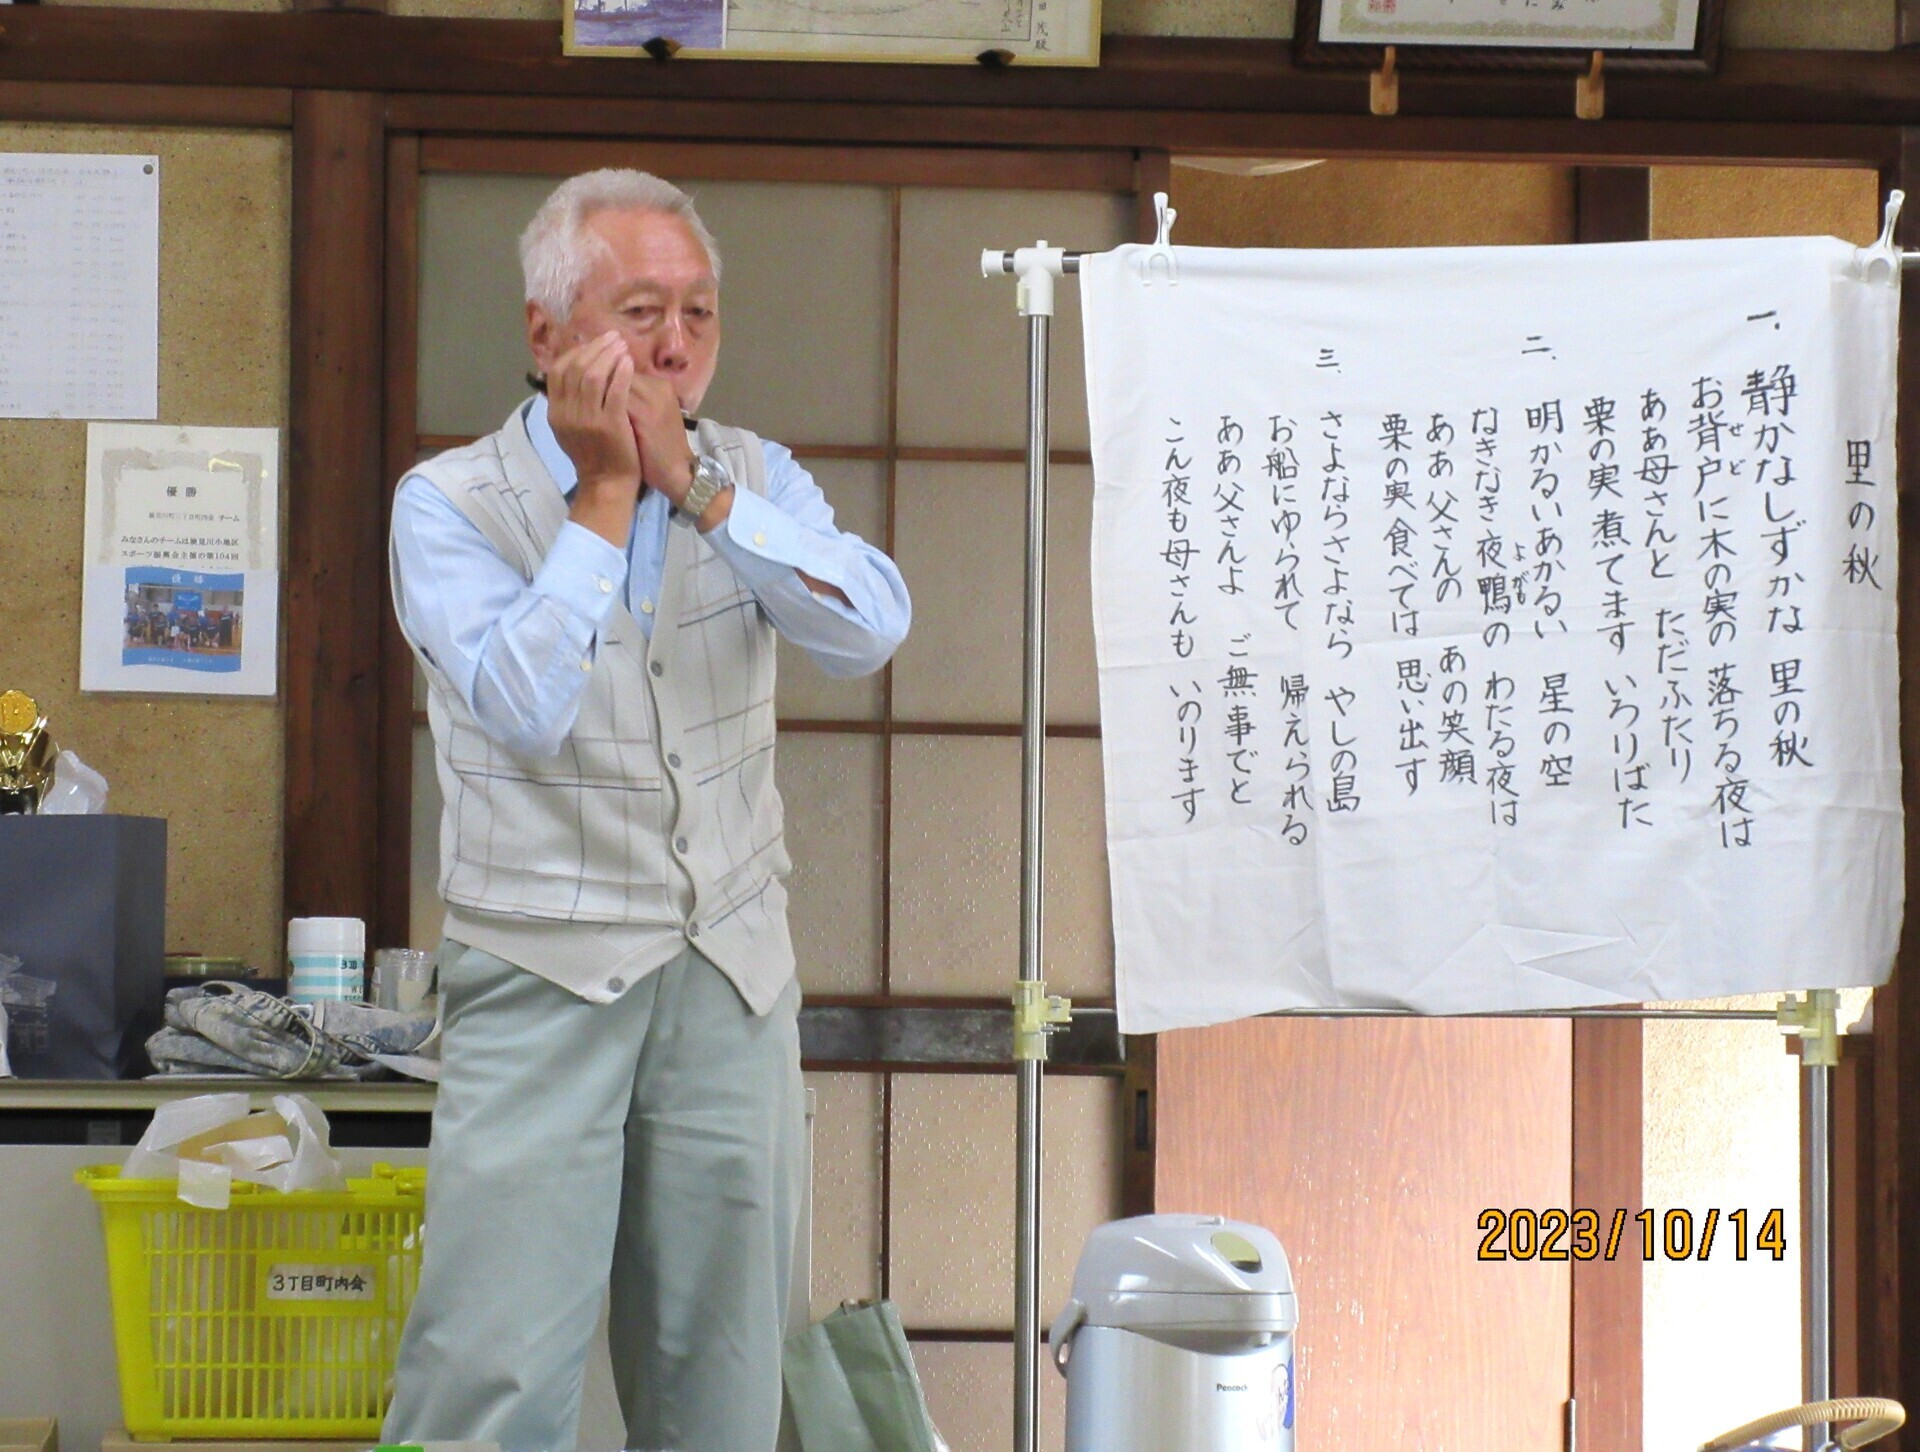 里の秋
一、
静かなしずかな 里の秋
お背戸に木の実の 落ちる夜は
せど
ああ母さんと ただふたり
栗の実 煮てます いろりばた
二、
明かるいあかるい 星の空
なきなき夜鴨の わたる夜は
よがも
ああ 父さんの あの笑顔
栗の実 食べては 思い出す
三、
さよならさよなら やしの島
お船にゆられて 帰えられる
ああ 父さんよ ご無事でと
こん夜も母さんも いのります
優勝
検見川町三丁目町内会 チーム
みなさんのチームは検見川小地区
スポーツ振興会主催の第104回
優勝
3丁目町内会
Peacock
2023/10/14